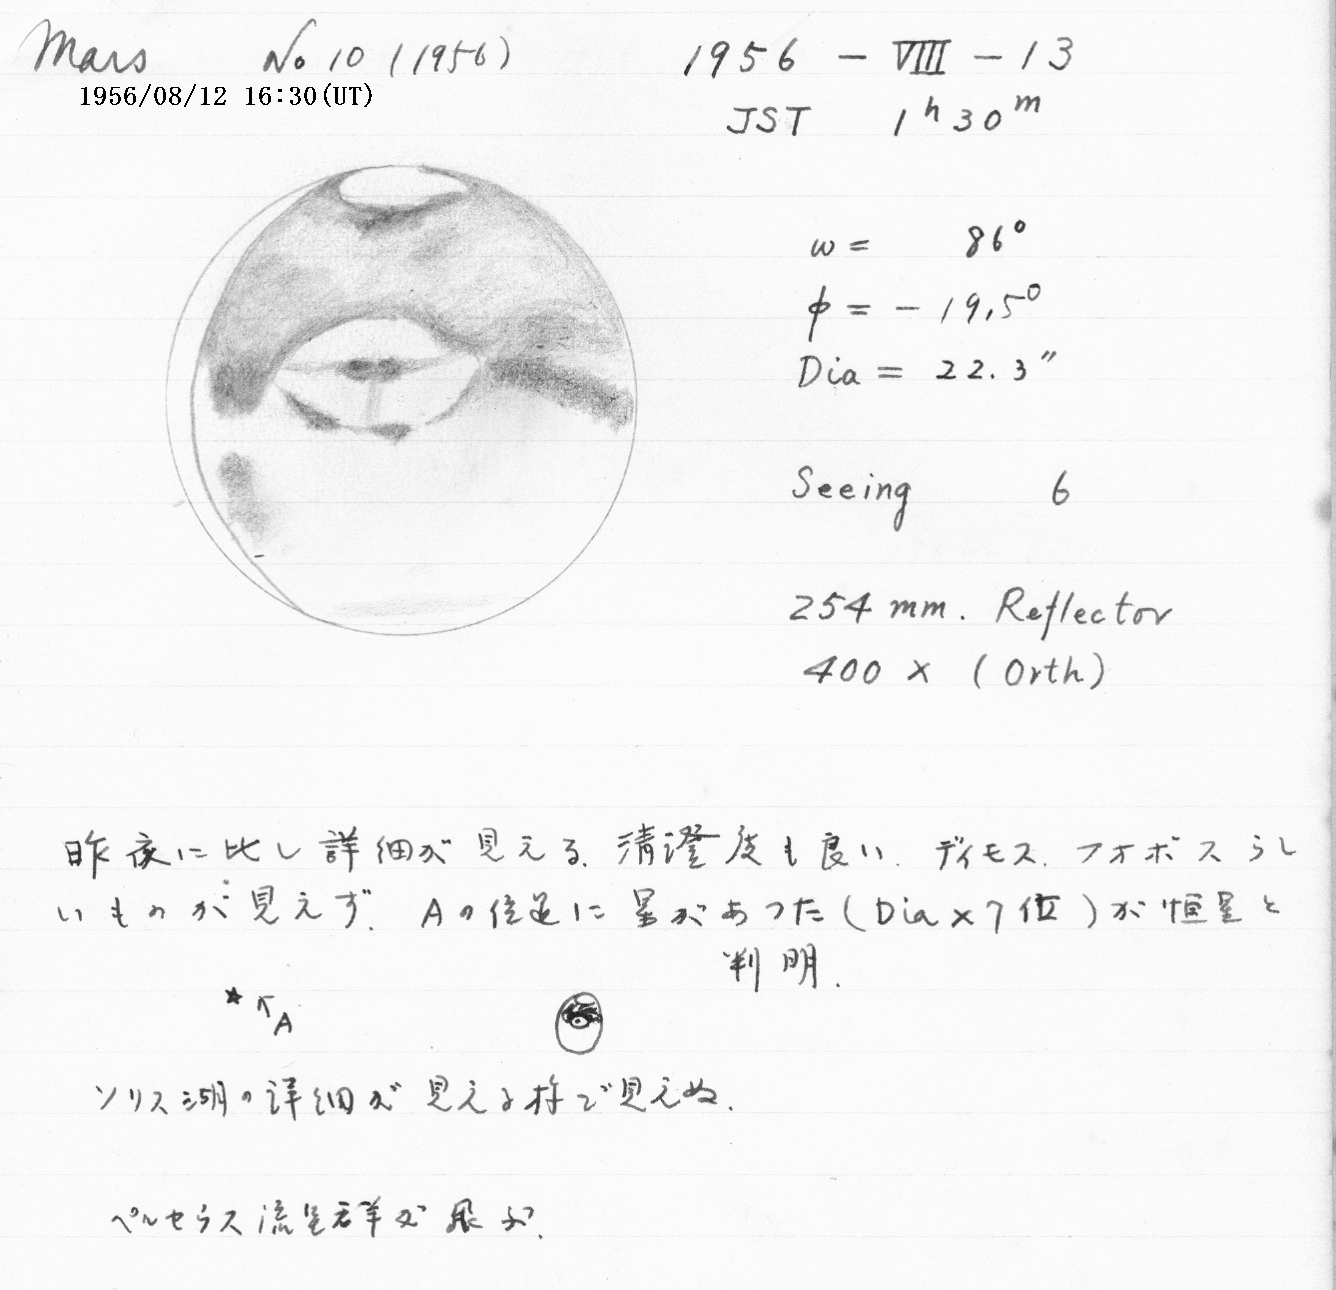 Mars No 10 (1956) 1956 - VIII - 13
1956/08/12 16:30(UT)
JST 1h30m
ω = 86°
φ = - 19.5°
Dia = 22.3″
Seeing 6
254 mm. Reflector
400 × (Orth)
昨夜に比し詳細が見える. 清澄度も良い. ディモス. フォボスらし
いものが見えず. Aの位置に星があった (Dia×7位) が恒星と
判明.
A
ソリス湖の詳細が見える様で見えぬ.
ペルセウス流星群が飛ぶ.